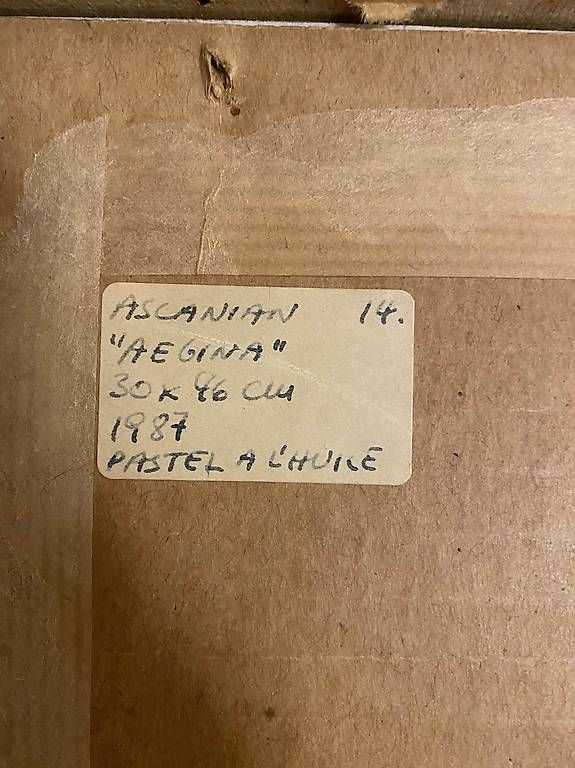 ASCANIAN 14.
"AEGINA"
30 x 46 cm
1987
PASTEL A L'HUILE